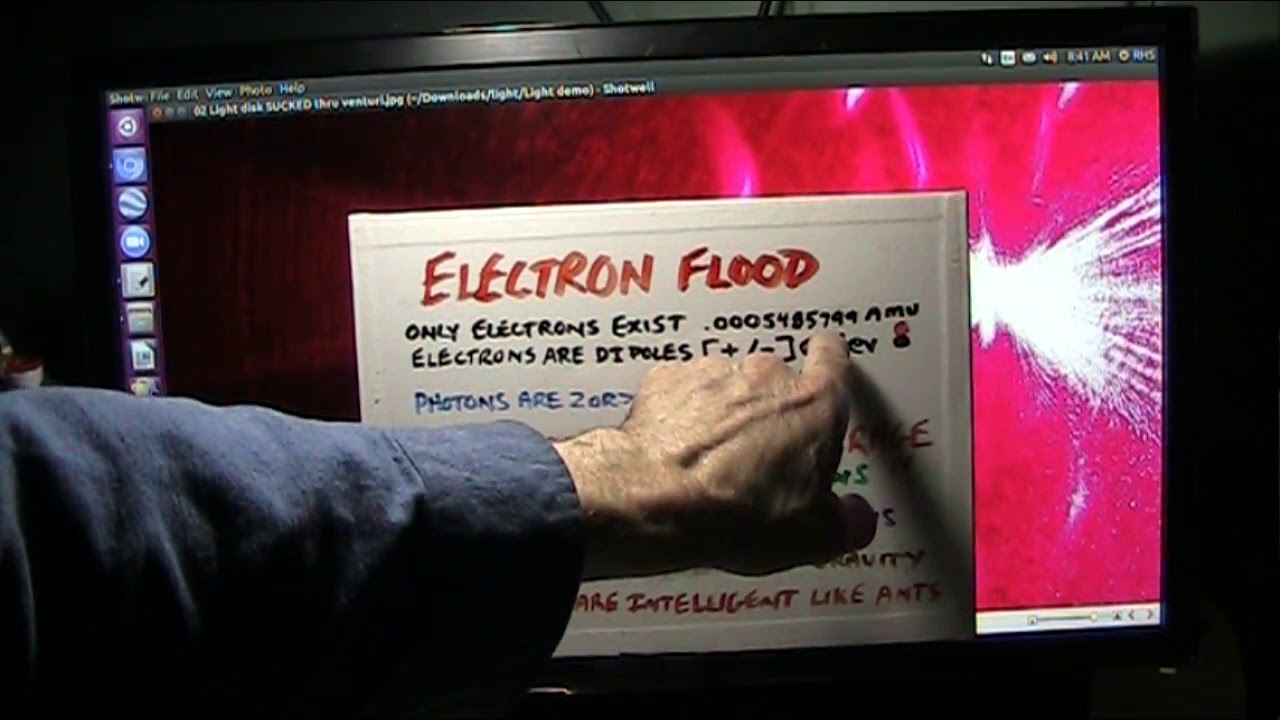 8:41 AM RHS
Shotw File Edit View Photo Help
02 Light disk SUCKED thru venturi.jpg (~/Downloads/light/Light demo) - Shotwell
ELECTRON FLOOD
ONLY ELECTRONS EXIST .0005485799 AMU
ELECTRONS ARE DIPOLES [+/-]
PHOTONS ARE
ARE INTELLIGENT LIKE ANTS